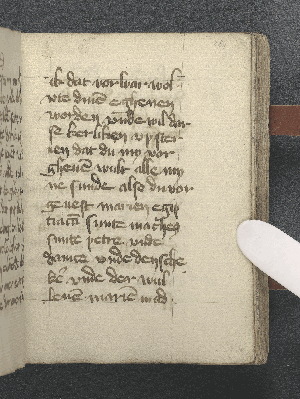 ik dat vor war wol
vte dinē eghenen
worden vnde wil dar
se kerliken vpster
uen dat du my vor
gheuē wult alle my
ne sunde alse du vor
geuest marien egip
tiacā sunte matheo
sunte petre vnde
dauite vnde den sche
ker vnde der wul
leuen marien mad